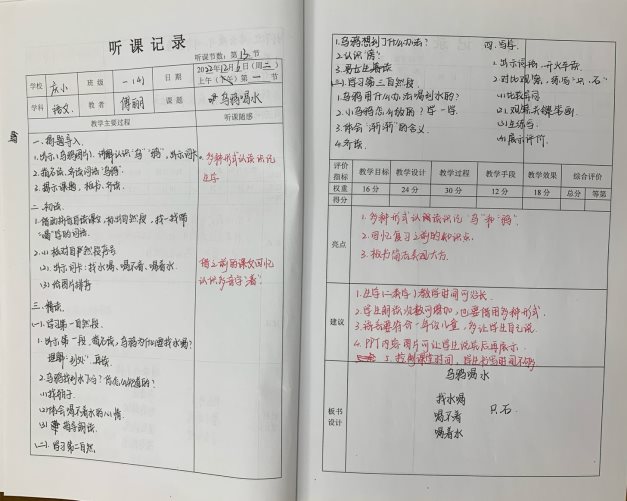 听课记录
听课节数：第 13 节
学校 庄小 班级 一（4） 日期 2022年12月6日（周二）
上午（下午）第一节
学科 语文 教者 傅丽 课题 乌鸦喝水
教学主要过程 听课随感
一、揭题导入
1.出示《乌鸦图片》，认识"乌""鸦"，出示词卡。
2.指名读，齐读词语"乌鸦"。
3.揭示课题，板书，齐读。
多种形式认读识记
生字
二、初读
1.借助拼音自读课文，标出自然段，找一找带
"喝"字的词语。
2.(1)核对自然段序号
(2)出示词卡：找水喝、喝不着、喝着水
(3)给图片排序
借之前的课文回忆
认识多音字"着"
三、精读
(一)学习第一自然段
1.出示第一段，指名读，乌鸦为什么要找水喝？
理解"到处"，再读。
2.乌鸦找到水了吗？
(1)找句子
(2)体会喝不着水的心情
(3)指导朗读
(二)学习第二自然
1.乌鸦想到了什么办法？
2.认识"房"
3.男女生赛读
(三)学习第三自然段
1.乌鸦用什么办法喝到水的？
2.小乌鸦怎么做的？学一学。
3.体会"渐渐"的含义。
4.齐读。
四、写字
1.出示词语，开火车读
2.对比观察，练写"只、石"
(1)比较异同
(2)观察关键笔画
(3)生练写
(4)展示评价
评价指标 教学目标 教学设计 教学过程 教学手段 教学效果 综合评价
权重 16分 24分 30分 12分 18分 总分 等第
得分
亮点
1.多种形式认读识记"乌"和"鸦"。
2.回忆复习之前的知识点。
3.板书简洁美观大方。
建议
1.生字（二类字）教学时间可以长。
2.学生朗读次数可增加，也要借用多种形式。
3.语言要符合一年级儿童，多让学生自己说。
4.PPT内容图片可让学生说完后再展示。
5.控制课堂时间，学生书写时间不够
板书设计
乌鸦喝水
找水喝
喝不着 只.石.
喝着水